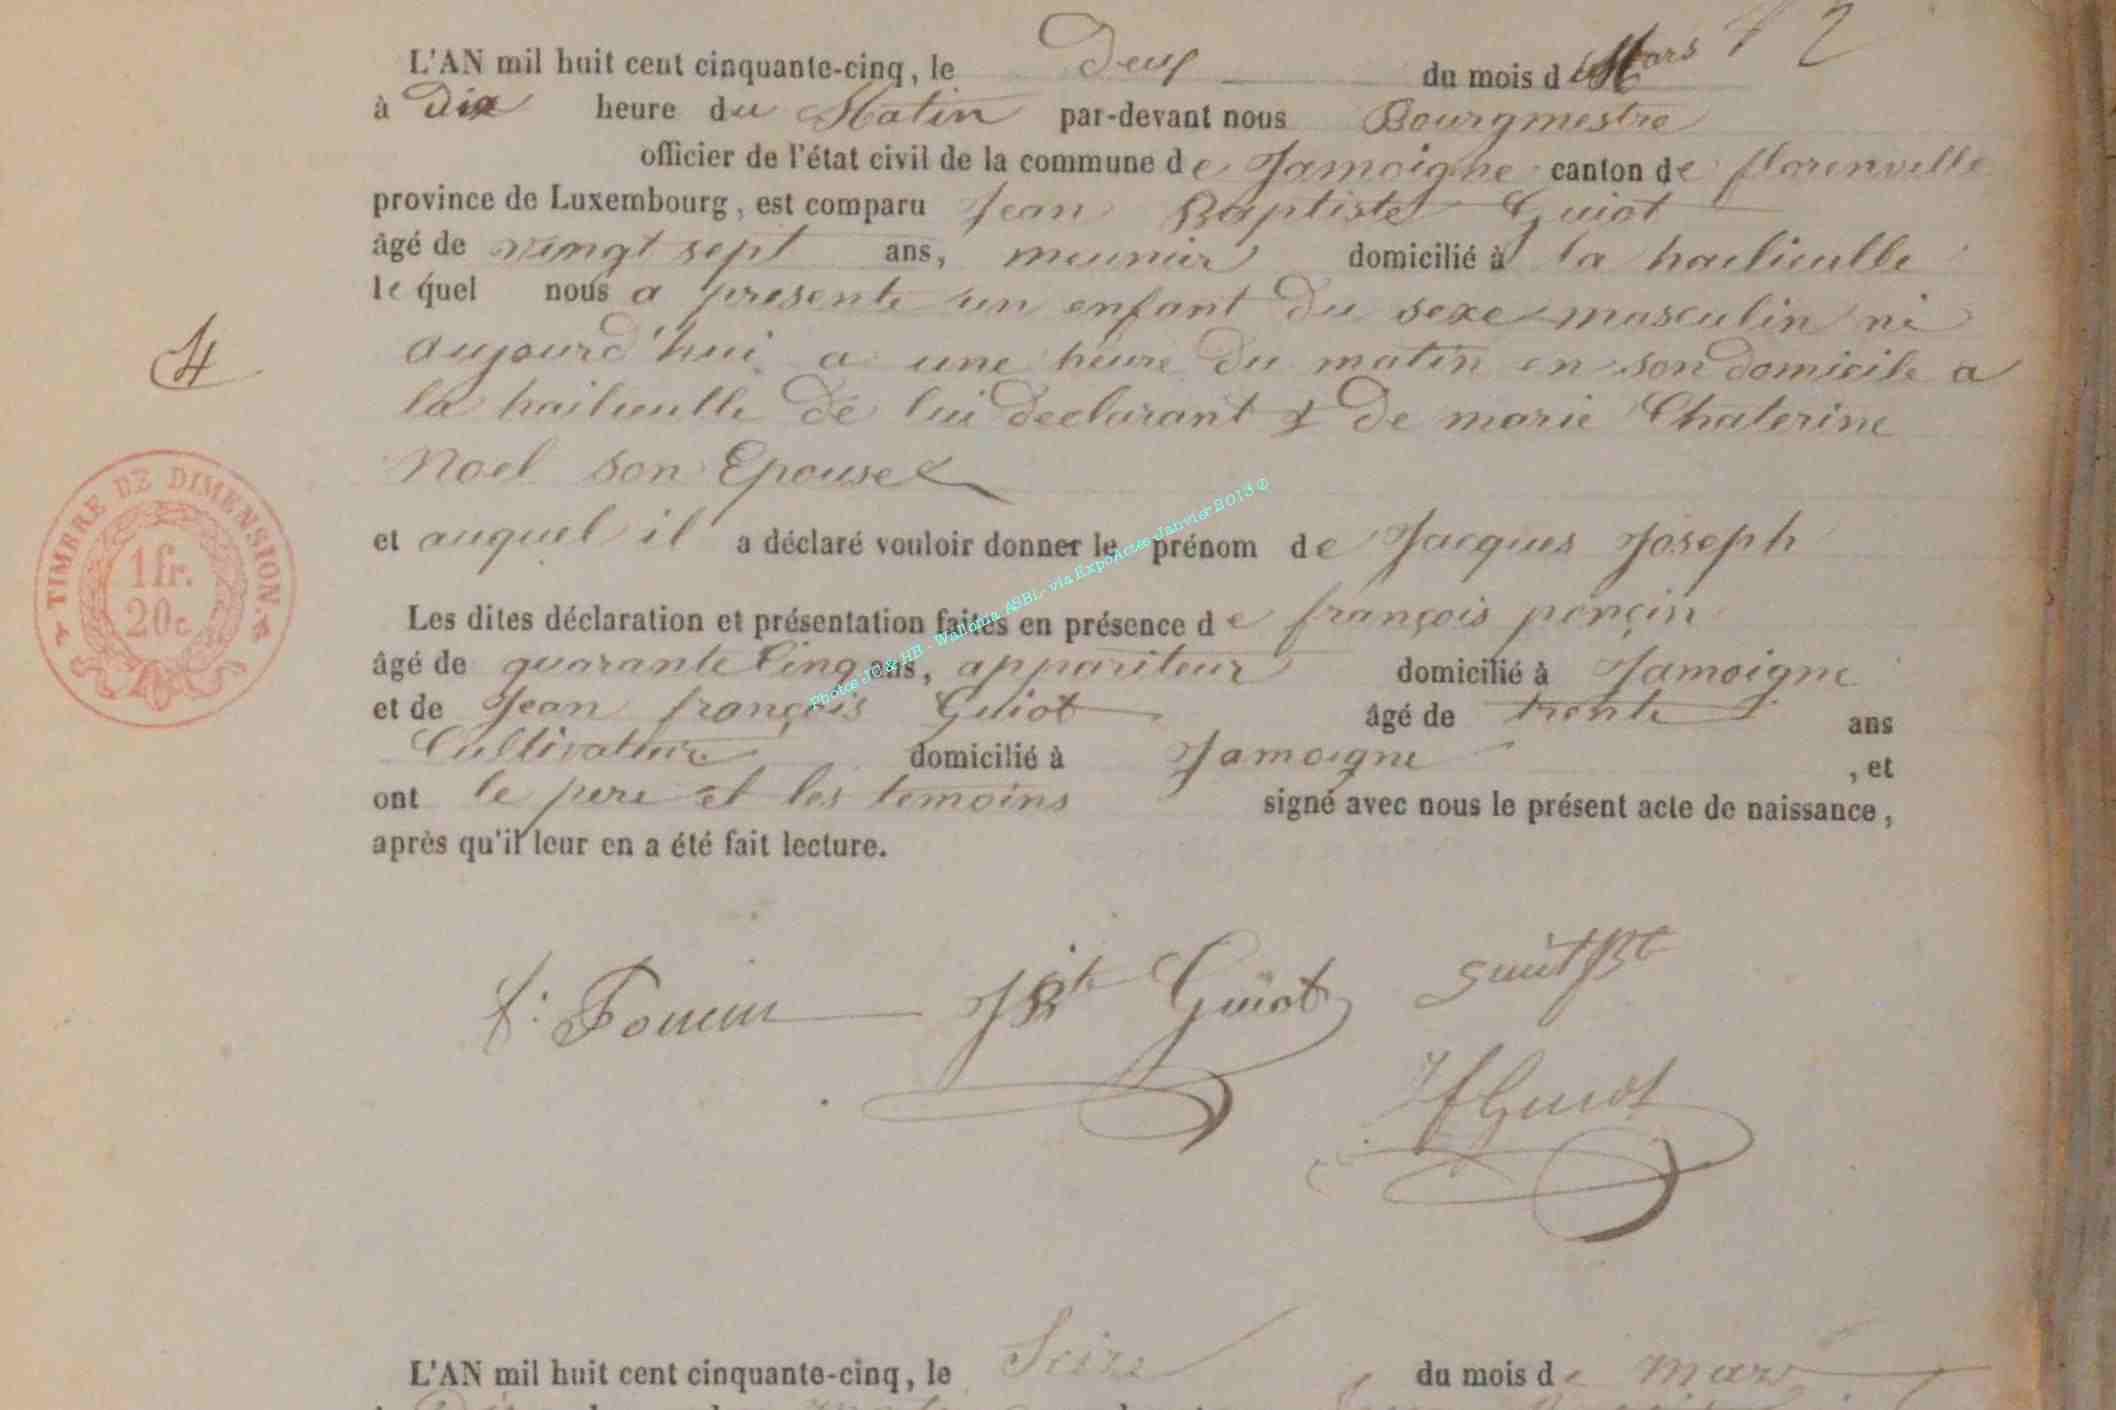 L'AN mil huit cent cinquante-cinq, le Deux du mois d Mars 2
à Dix heure du Matin par-devant nous Bourgmestre
officier de l'état civil de la commune de Jamoigne canton de florenville
province de Luxembourg, est comparu Jean Baptiste Guiot
âgé de vingt sept ans, meunier domicilié à la hailieulle
le quel nous a presente un enfant du sexe masculin né
aujourd'hui a une heure du matin en son domicile a
la hailieulle de lui declarant & de marie Chaterine
Noel son Epouse
et auquel il a déclaré vouloir donner le prénom de Jacques Joseph
Les dites déclaration et présentation faites en présence de françois ponçin
âgé de quarante Cinq ans, appariteur domicilié à Jamoigne
et de Jean françois Guiot âgé de trente ans
Cultivateur domicilié à Jamoigne , et
ont le pere et les temoins signé avec nous le présent acte de naissance,
après qu'il leur en a été fait lecture.
4
TIMBRE DE DIMENSION.
1 fr.
20c
Photos JC & HB - Wallonia ASBL - via ExpoActes Janvier 2013 ©
f: Poncin JBte Guiot
JfGuiot
L'AN mil huit cent cinquante-cinq, le Seize du mois de mars